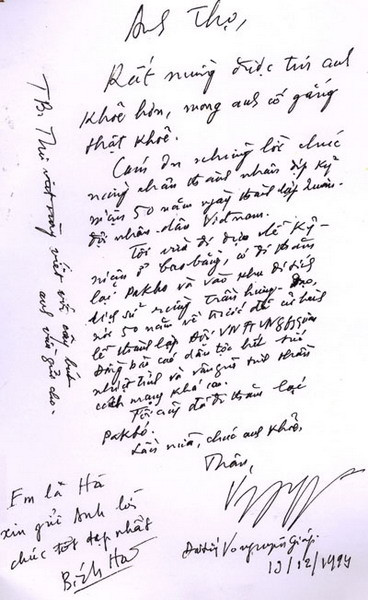 Anh Thọ,
Rất mừng được tin anh
khoẻ hơn, mong anh cố gắng
thật khoẻ.
Cám ơn những lời chúc
mừng nhân th nhân dịp kỷ
niệm 50 năm ngày thành lập Quân
đội nhân dân Việt nam.
Tôi vừa đi dự lễ kỷ
niệm ở Cao bằng, có đi thăm
lại Pakbo và văn khu di tích
lịch sử rừng Trần hưng Đạo,
nơi 50 năm về trước đã cử hành
lễ thành lập Đội VNTTGPQ
Đồng bào các dân tộc hết sức
nhiệt tình và vẫn giữ tinh thần
cách mạng khá cao.
Tôi cũng đã đi thăm lại
Pakbó.
Lần nữa, chúc anh khoẻ.
Thân,
Đại tướng Vo nguyên Giáp
13/12/1994
T.B. Thư này viết với cây bút
anh vừa gửi cho.
Em là Hà
xin gửi Anh lời
chúc tốt đẹp nhất
Bích Hà